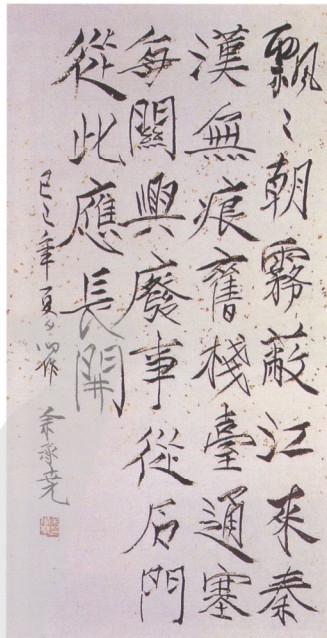 飄〻朝霧蔽江來秦
漢無痕舊棧臺通塞
每關興廢事從石門
從此應長開
己巳年夏作 余承堯